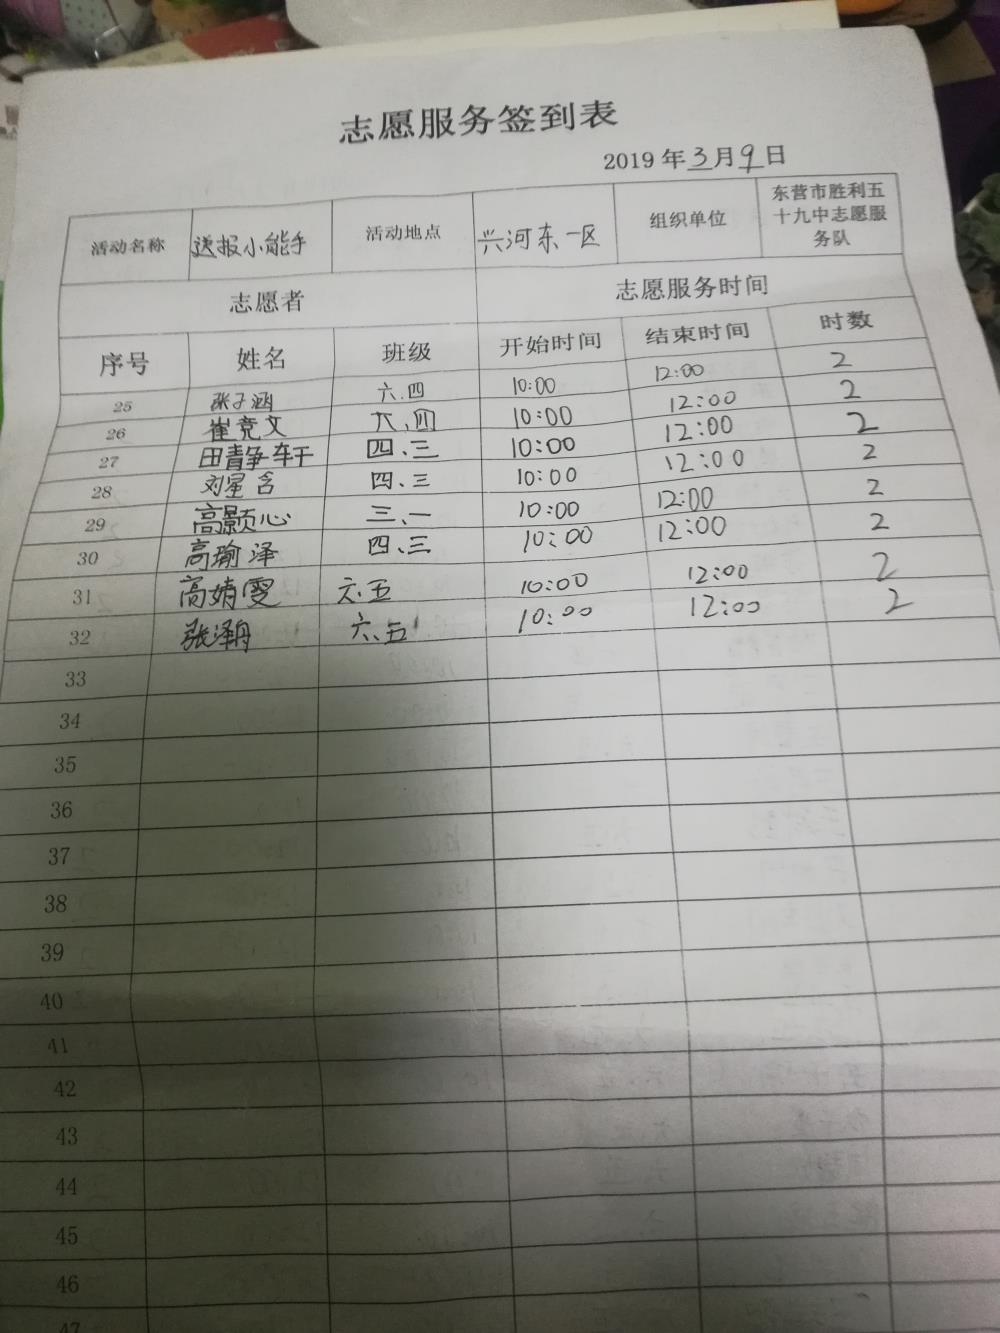 志愿服务签到表
2019年3月9日
活动名称 送报小能手 活动地点 兴河东一区 组织单位 东营市胜利五十九中志愿服务队
志愿者 志愿服务时间
序号 姓名 班级 开始时间 结束时间 时数
25 张子涵 六.四 10:00 12:00 2
26 崔竞文 六、四 10:00 12:00 2
27 田静轩 四、三 10:00 12:00 2
28 刘星含 四、三 10:00 12:00 2
29 高颢心 三、一 10:00 12:00 2
30 高瑜泽 四、三 10:00 12:00 2
31 高婧雯 六、五 10:00 12:00 2
32 张泽舟 六、五 10:00 12:00 2
33
34
35
36
37
38
39
40
41
42
43
44
45
46
47